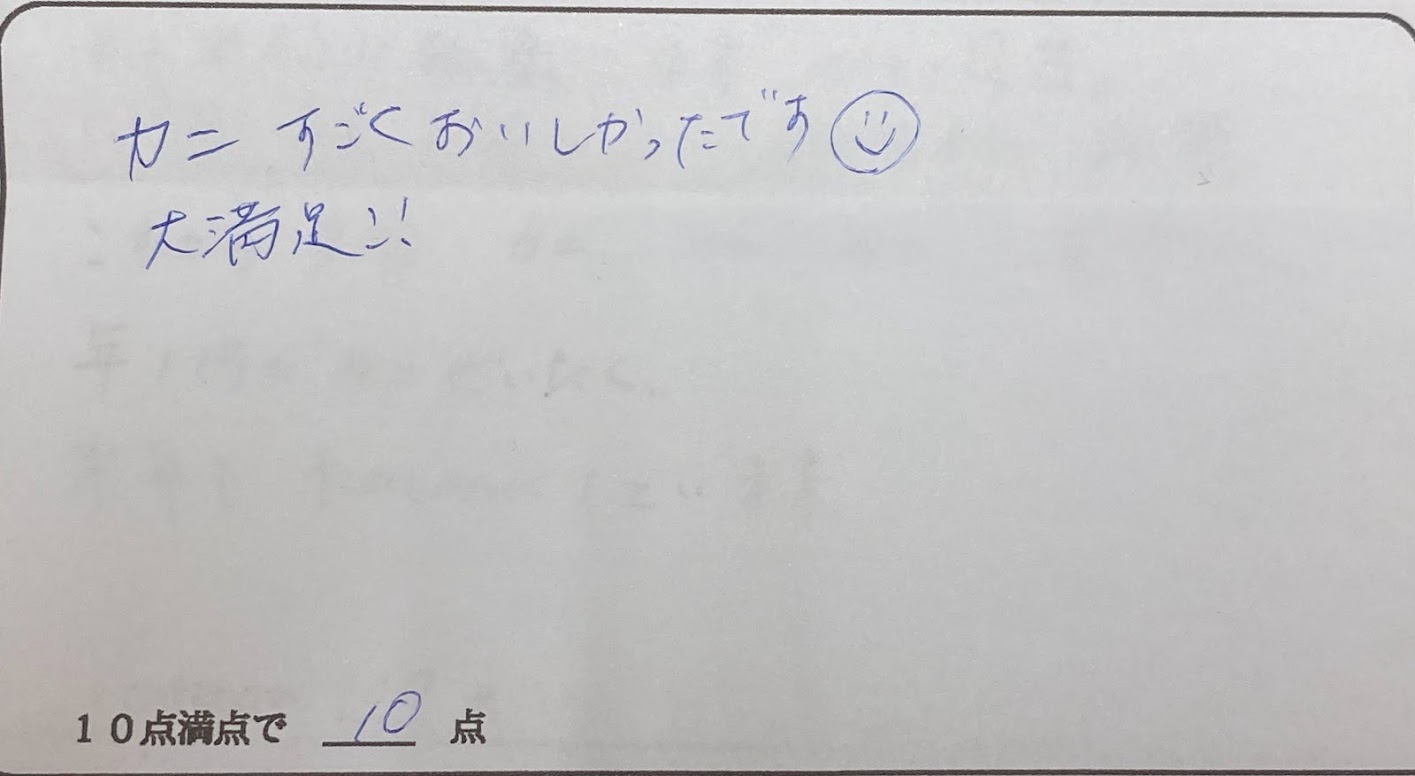 カニ すごくおいしかったです
大満足!!
10点満点で 10 点